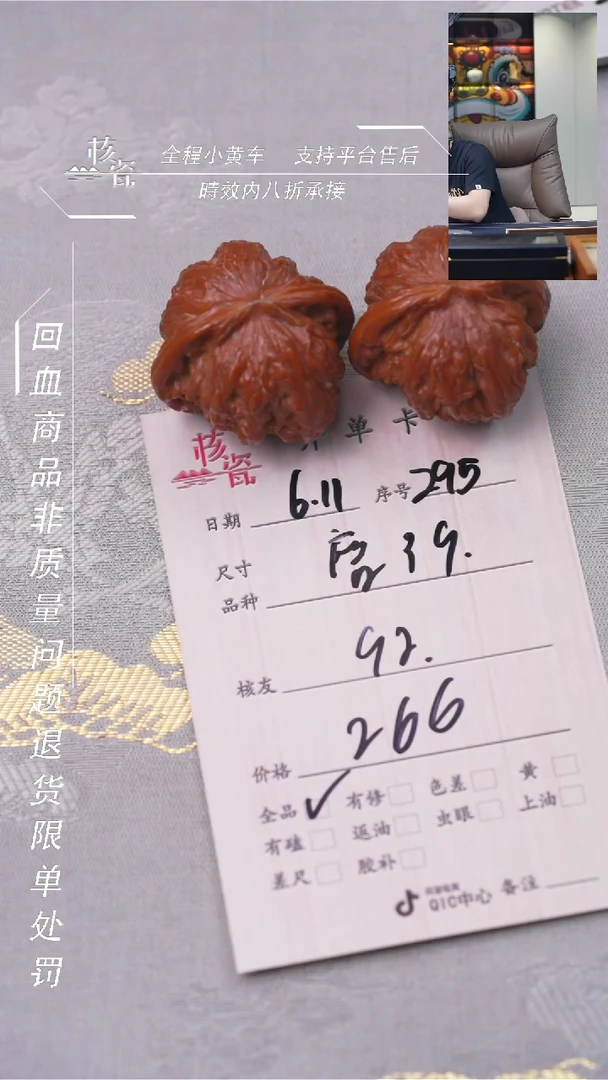 核瓷
全程小黄车 支持平台售后
時效内八折承接
回血商品非质量问题退货限单处罚
单卡
核瓷
日期 6.11 序号 295
尺寸 39.
品种
核友 92.
价格 266
全品 ✓ 有修 色差 黄
有磕 返油 虫眼 上油
差尺 胶补
QIC中心 备注